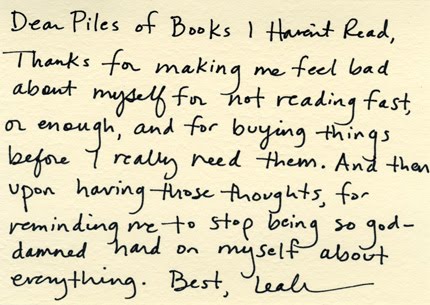 Dear Piles of Books I Haven't Read,
Thanks for making me feel bad
about myself for not reading fast,
or enough, and for buying things
before I really need them. And then
upon having those thoughts, for
reminding me to stop being so god-
damned hard on myself about
everything. Best, Leah